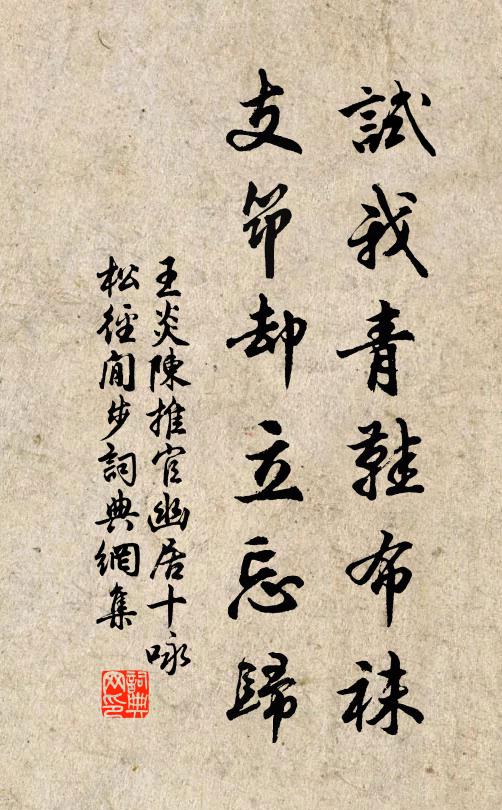 試我青鞋布袜
支筇却立忘歸
王炎陳推官幽居十咏
松徑閒步詞典網集
詞典网印